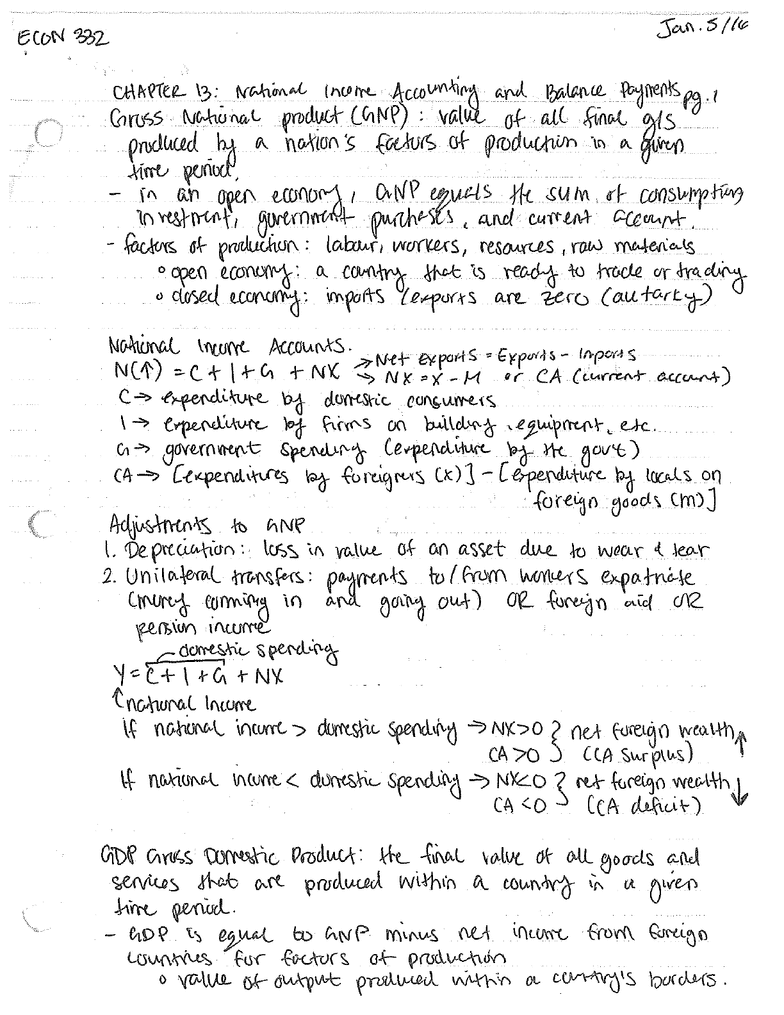 ECON 332
Jan. 5/16
CHAPTER 13: National Income Accounting and Balance Payments pg. 1
Gross National product (GNP): value of all final g/s
produced by a nation's factors of production in a given
time period.
- in an open economy, GNP equals the sum of consumption
investment, government purchases, and current account.
- factors of production: labour, workers, resources, raw materials
o open economy: a country that is ready to trade or trading
o closed economy: imports/exports are zero (autarky)
National Income Accounts.
N(↑) = C + I + G + NX → Net exports = Exports - Imports
→ NX = X - M or CA (current account)
C → expenditure by domestic consumers
I → expenditure by firms on building, equipment, etc.
G → government spending (expenditure by the gov't)
CA → [expenditures by foreigners (X)] - [expenditure by locals on
foreign goods (M)]
Adjustments to GNP
1. Depreciation: loss in value of an asset due to wear & tear
2. Unilateral transfers: payments to/from workers expatriate
(money comming in and going out) OR foreign aid OR
pension income
domestic spending
Y = C + I + G + NX
↑ national Income
If national income > domestic spending → NX>0 } net foreign wealth ↑
CA>0 } (CA surplus)
If national income < domestic spending → NX<0 } net foreign wealth ↓
CA<0 } (CA deficit)
GDP Gross Domestic Product: the final value of all goods and
services that are produced within a country in a given
time period.
- GDP is equal to GNP minus net income from foreign
countries for factors of production
o value of output produced within a country's borders.